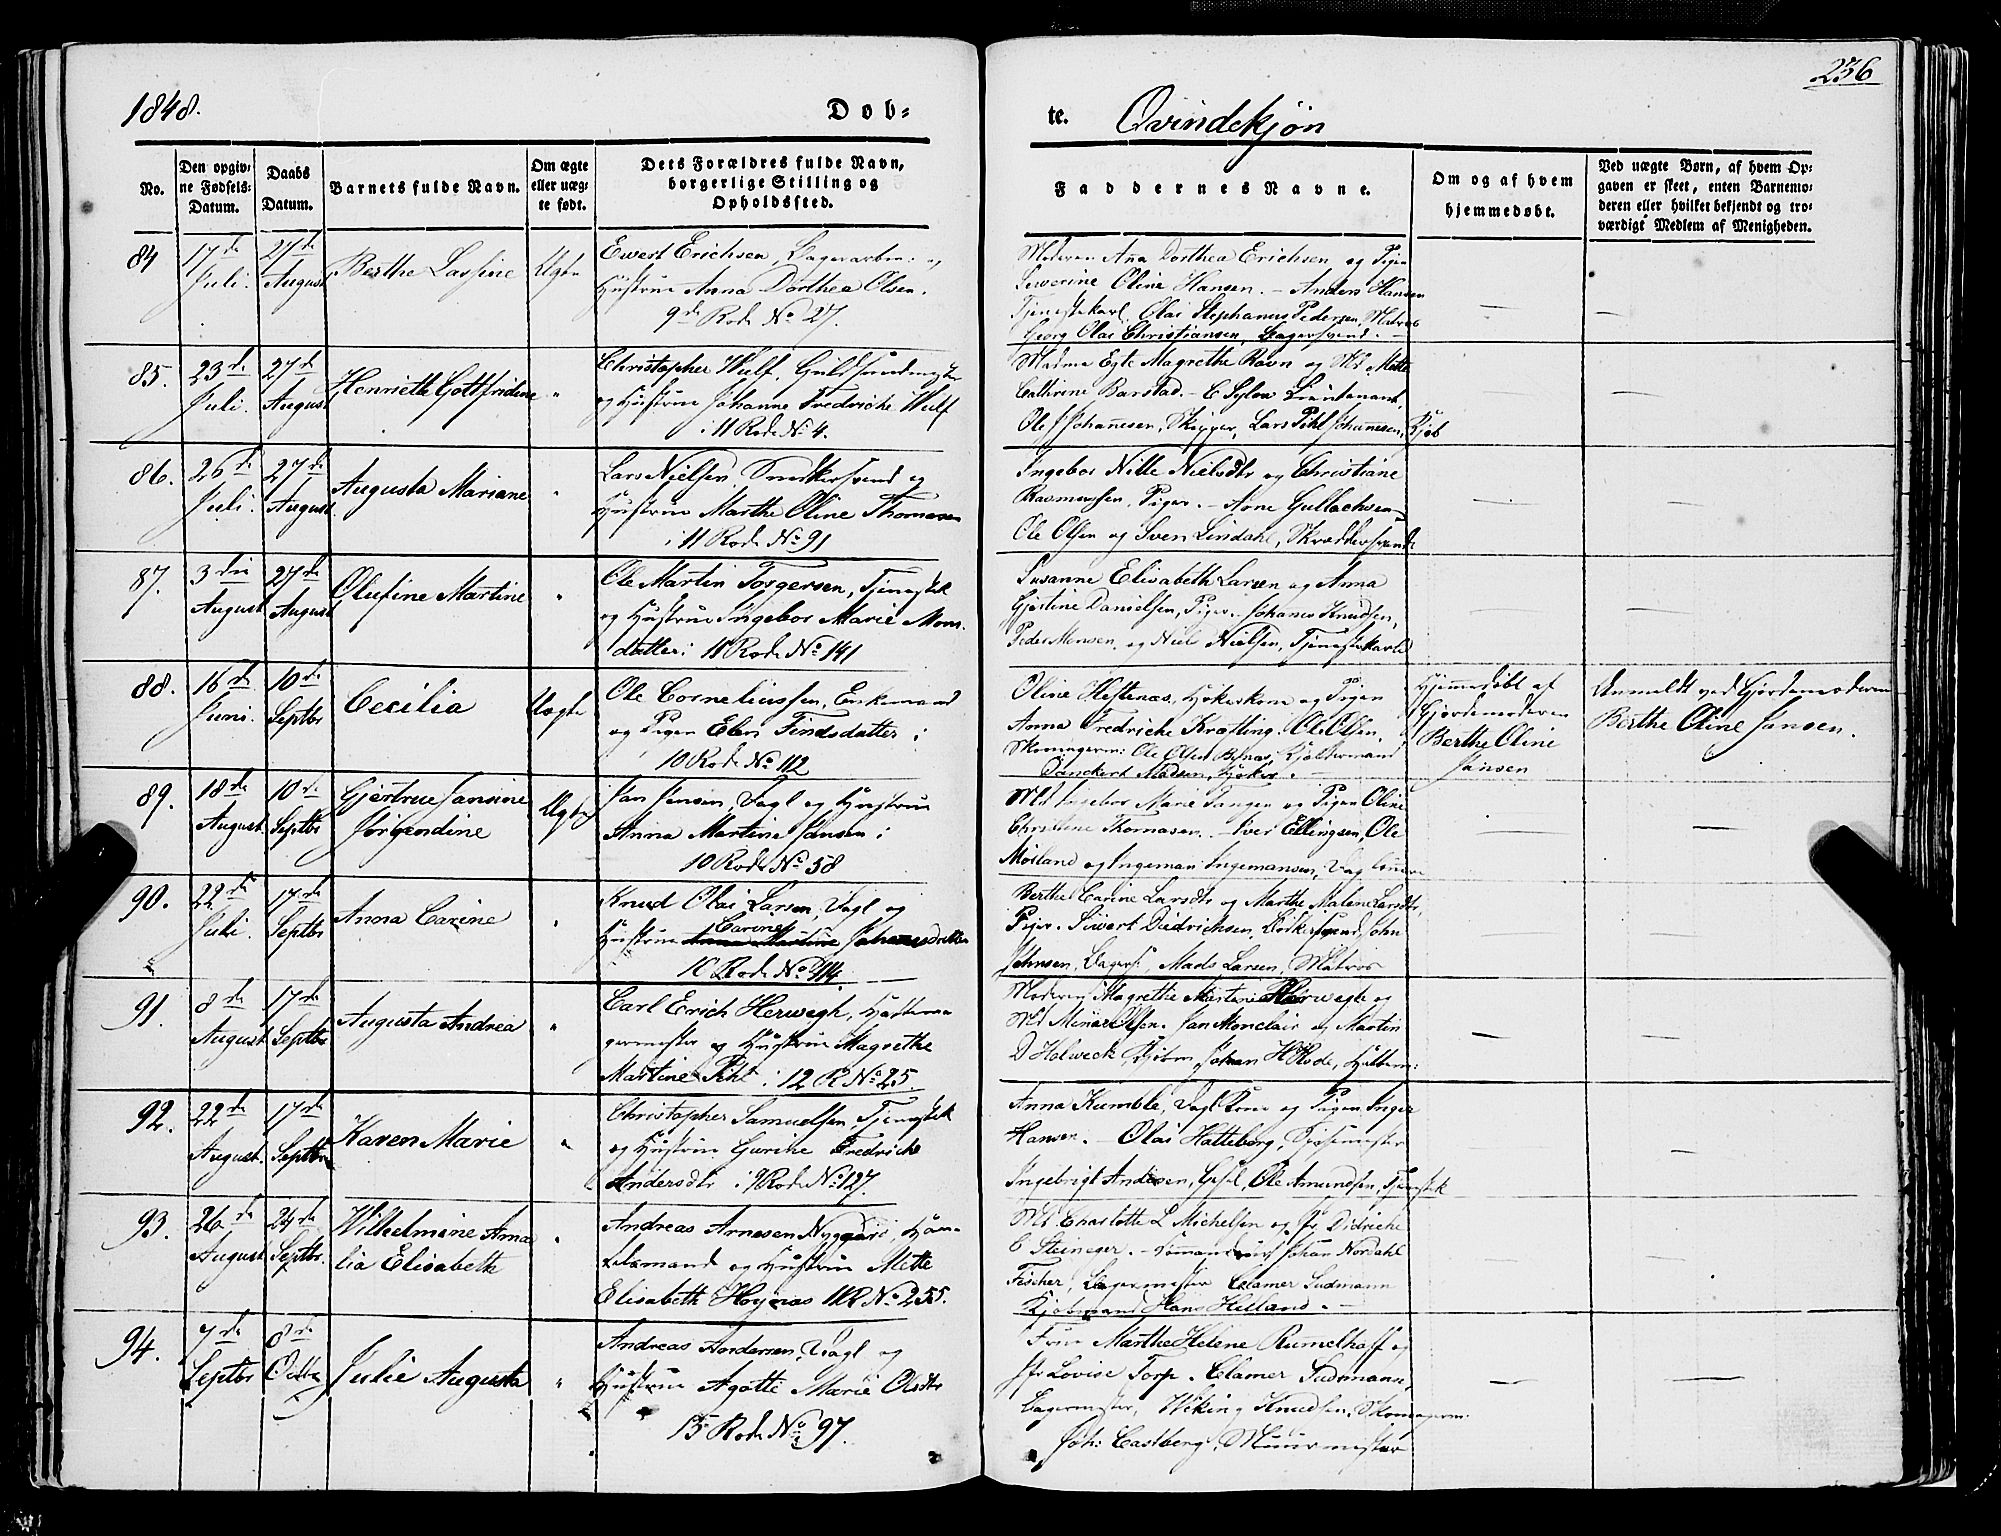 236
1848.
Døb-
te.
Qvindekjøn
No.
Den opgiv-
ne Fødsels-
Datum.
Daabs
Datum.
Barnets fulde Navn.
Om ægte
eller uæg-
te født.
Dets Forældres fulde Navn,
borgerlige Stilling og
Opholdssted.
Faddernes Navne.
Om og af hvem
hjemmedøbt.
Ved uægte Børn, af hvem Op-
gaven er skeet, enten Barnemo-
deren eller hvilket bekjendt og tro-
værdigt Medlem af Menigheden.
84
17de
Juli
27de
August
Berthe Lassine
Ægte
Ewert Erichsen, og
Hustrue Anna Dorthea Olsen.
9de Rode No 27.
Moderen Ana Dorthea Erichsen og Pigen
Severine Oline Hansen. - Anders Hansen
Tjenestekarl, Olai Stephanus Pedersen, Matros
Georg Olai Christiansen, Bagersvend. -
85.
23de
Juli.
27de
August
Henriette Gottfridine
"
Christopher Wulf, Guldsmedmester
og Hustrue Johanne Fredricke Wulf
i 11 Rode No 4.
Madme Egte Magrethe Ravn og Md Mette
Cathrine Barstad. - C Sylow Lieutenant,
Ole J Johannesen, Skipper, Lars Pihl Johannesen, Kjøb
86.
26de
Juli.
27de
August
Augusta Mariane
"
Lars Nielsen, Snedkersvend og
Hustrue Marthe Oline Thomasen
i 11 Rode No 91
Ingebor Nille Nielsdtr og Christiane
Rasmussen, Piger. - Arne Gullachsen
Ole Olsen og Sven Lindahl, Skræddersvende
87.
3die
August
27de
August
Olufine Martine
"
Ole Martin Torgersen, Tjenestek
og Hustrue Ingebor Marie Mons-
datter i 11 Rode No 141
Susanne Elisabeth Larsen og Anna
Gjertine Danielsen, Piger. Johanes Knudsen,
Peder Monsen, og Niel Nielsen, Tjenestekarle
88.
16de
Juni.
10de
Septbr
Cecilia
Uægte
Ole Corneliussen, Enkemand
og Pigen Eleri Findsdatter i
10 Rode No 112
Oline Hestenæs, Høkerkone og Pigen
Anna Fredriche Krøtling. Ole Olsen,
Skomagerm: Ole Olsen Bynæs, Kjeldermand
Danckert Madsen, Høker. -
Hjemmedøbt af
Gjordemoderen
Berthe Oline
Jansen
Anmeldt ved Gjordemoderen
Berthe Oline Jansen.
89.
18de
August
10de
Septbr
Gjertrue Jansine
Jørgendine
Ægte
Jan Jensen, Dagl og Hustrue
Anna Martine Hansen i
10 Rode No 58
Md Ingebor Marie Tangen og Pigen Oline
Christine Thomasen. - Iver Ellingsen, Ole
Mosland og Ingeman Ingemansen, Dag
90.
22de
Juli
17de
Septbr
Anna Carine
"
Knud Olai Larsen, Dagl og
Carine
Hustrue Anna Martine Johanesdatter
10 Rode No 114.
Berthe Carine Larsdtr og Marthe Malene Larsdtr,
Piger. Siwert Didrichsen, Bødkersvend, John
Johnsen, Bagers: Mads Larsen, Matros
91.
8de
August
17de
Septbr
Augusta Andrea
"
Carl Erich Herwegh, Hattema-
germester og Hustrue Magrethe
Martine Pihl i 12 R No 25.
Moderen Magrethe Martine Herwegh og
Md Olsen. Jan Monclair og Martin
D Holweck, Kjøbm Johan H Rode, Hattem:
92.
22de
August.
17de
Septbr
Karen Marie
"
Christopher Samuelsen, Tjenestek
og Hustrue Gurine Fredricke
Andersdtr i 9 Rode No 127.
Anna Kumble, Dagl Kone og Pigen Inger
Hansen. - Olai Hatteberg,
Ingebrigt Andersen, Ole Amundsen, Tjenestek
93.
26de
August
24de
Septbr.
Wilhelmine Ama-
lia Elisabeth
"
Andreas Arnesen Nyggaard, Han-
delsmand og Hustrue Mette
Elisabeth Heynas 11 R No 255.
Md Charlotte L Michelsen og Jfr Didricke
C Steineger. - Commandeur Johan Nordahl
Fischer, Bagermester Clamer Sudmann
Kjøbmand Hans Helland. -
94.
7de
Septbr
8de
Octbr
Julie Augusta
"
Andreas Andersen, Dagl og
Hustrue Agatte Marie Olsdtr
15 Rode No 97.
Frue Marthe Helene Rumelhoff og
Jfr Lovise Torp. Clamer Sudmann,
Bagermester, Wiking Knudsen, Skomagerm:
Joh: Castberg, Muurmester